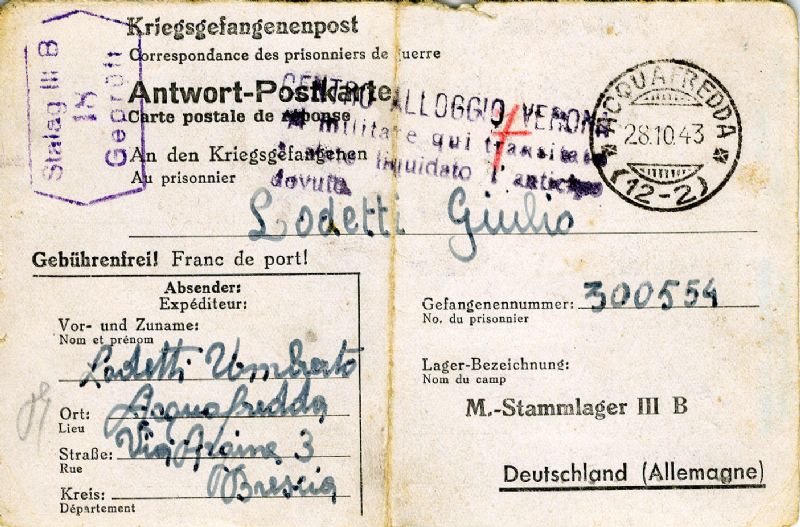 Stalag III B
18
Geprüft
Kriegsgefangenenpost
Correspondance des prisonniers de guerre
Antwort-Postkarte
Carte postale de réponse
CENTRO ALLOGGIO VERONA
militare qui transitato
liquidato l'anticipo
dovuto
ACQUAFREDDA
28.10.43
(12-2)
An den Kriegsgefangenen
Au prisonnier
Lodetti Giulio
Gebührenfrei! Franc de port!
Absender:
Expéditeur:
Vor- und Zuname:
Nom et prénom
Lodetti Umberto
Ort: Acquafredda
Lieu
Straße: Via 3
Rue
Kreis: Brescia
Département
Gefangenennummer: 300554
No. du prisonnier
Lager-Bezeichnung:
Nom du camp
M.-Stammlager III B
Deutschland (Allemagne)